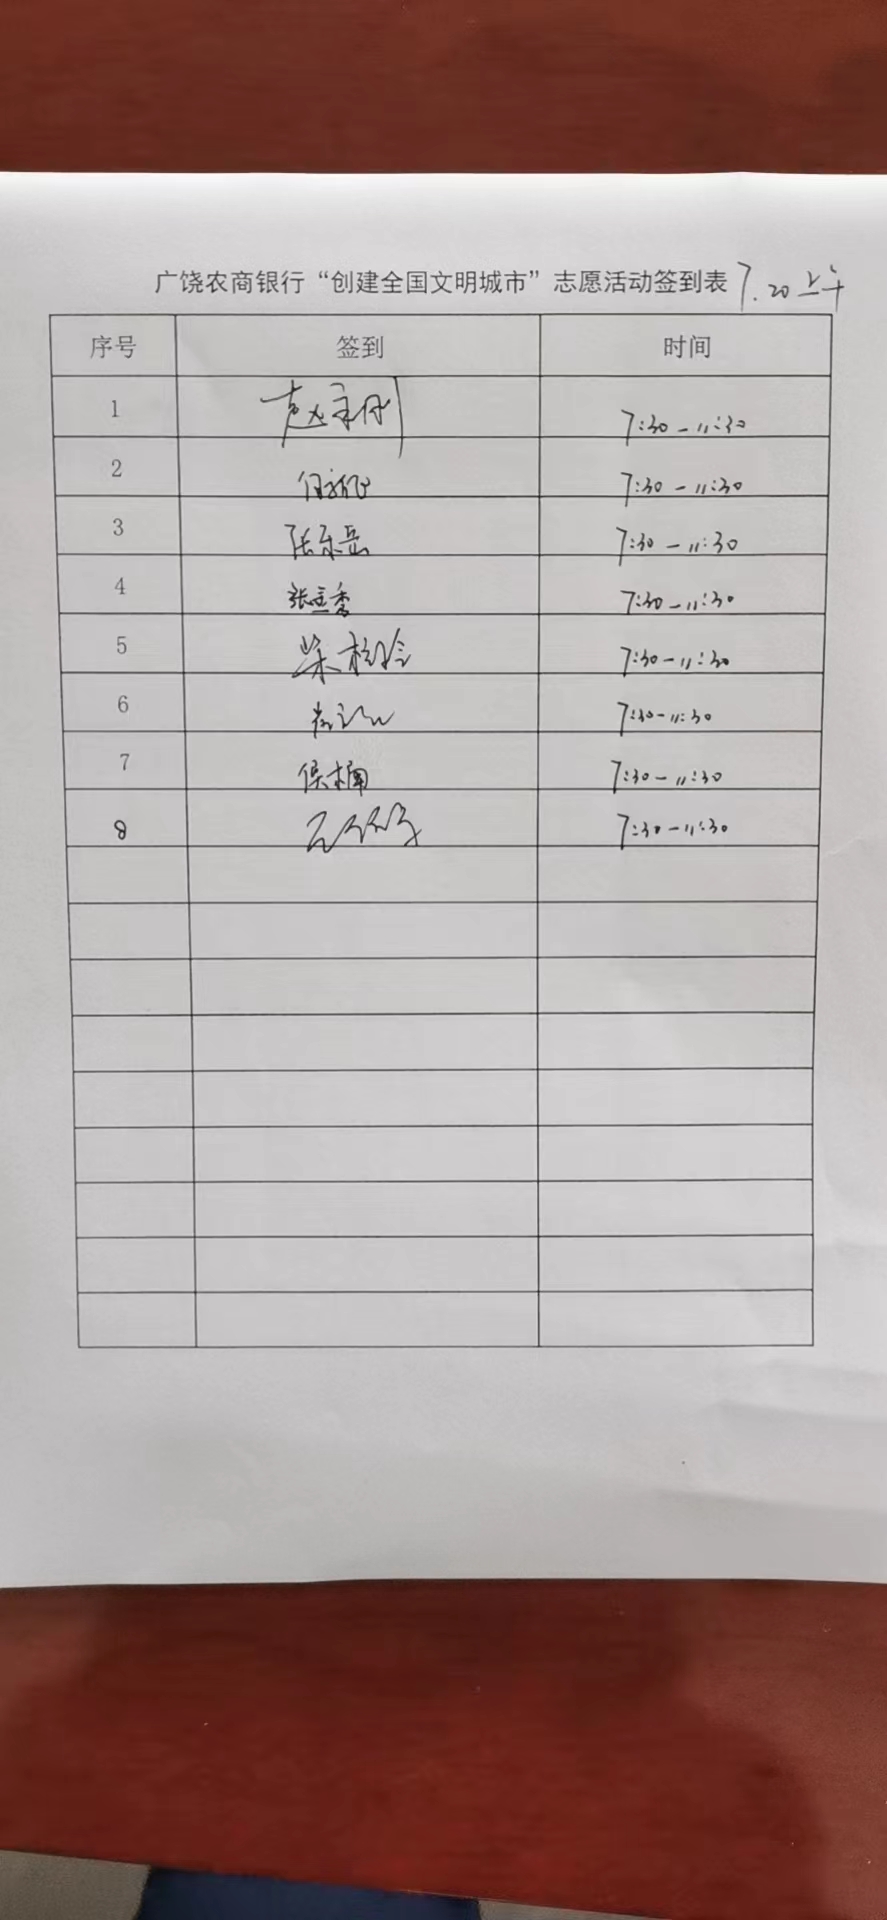 广饶农商银行“创建全国文明城市”志愿活动签到表 7.20上午
序号 签到 时间
1 7:30-11:30
2 7:30-11:30
3 张乐岳 7:30-11:30
4 7:30-11:30
5 7:30-11:30
6 7:30-11:30
7 侯楠 7:30-11:30
8 7:30-11:30